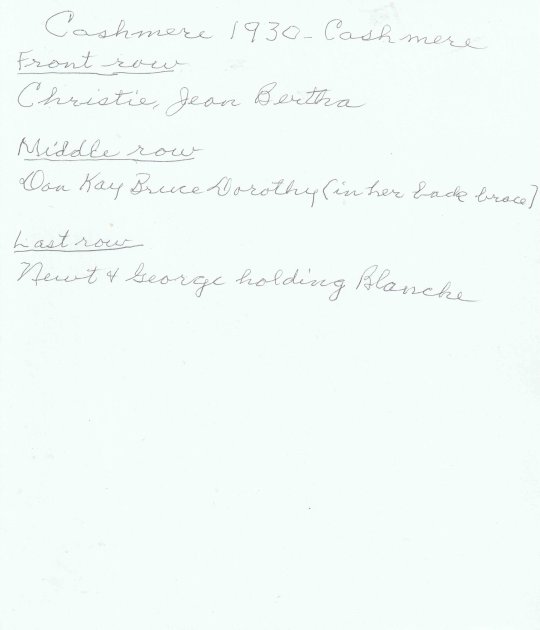 Cashmere 1930 - Cashmere
Front row
Christie, Jean Bertha
Middle row
Don Kay Bruce Dorothy (in her back brace)
Last row
Newt & George holding Blanche